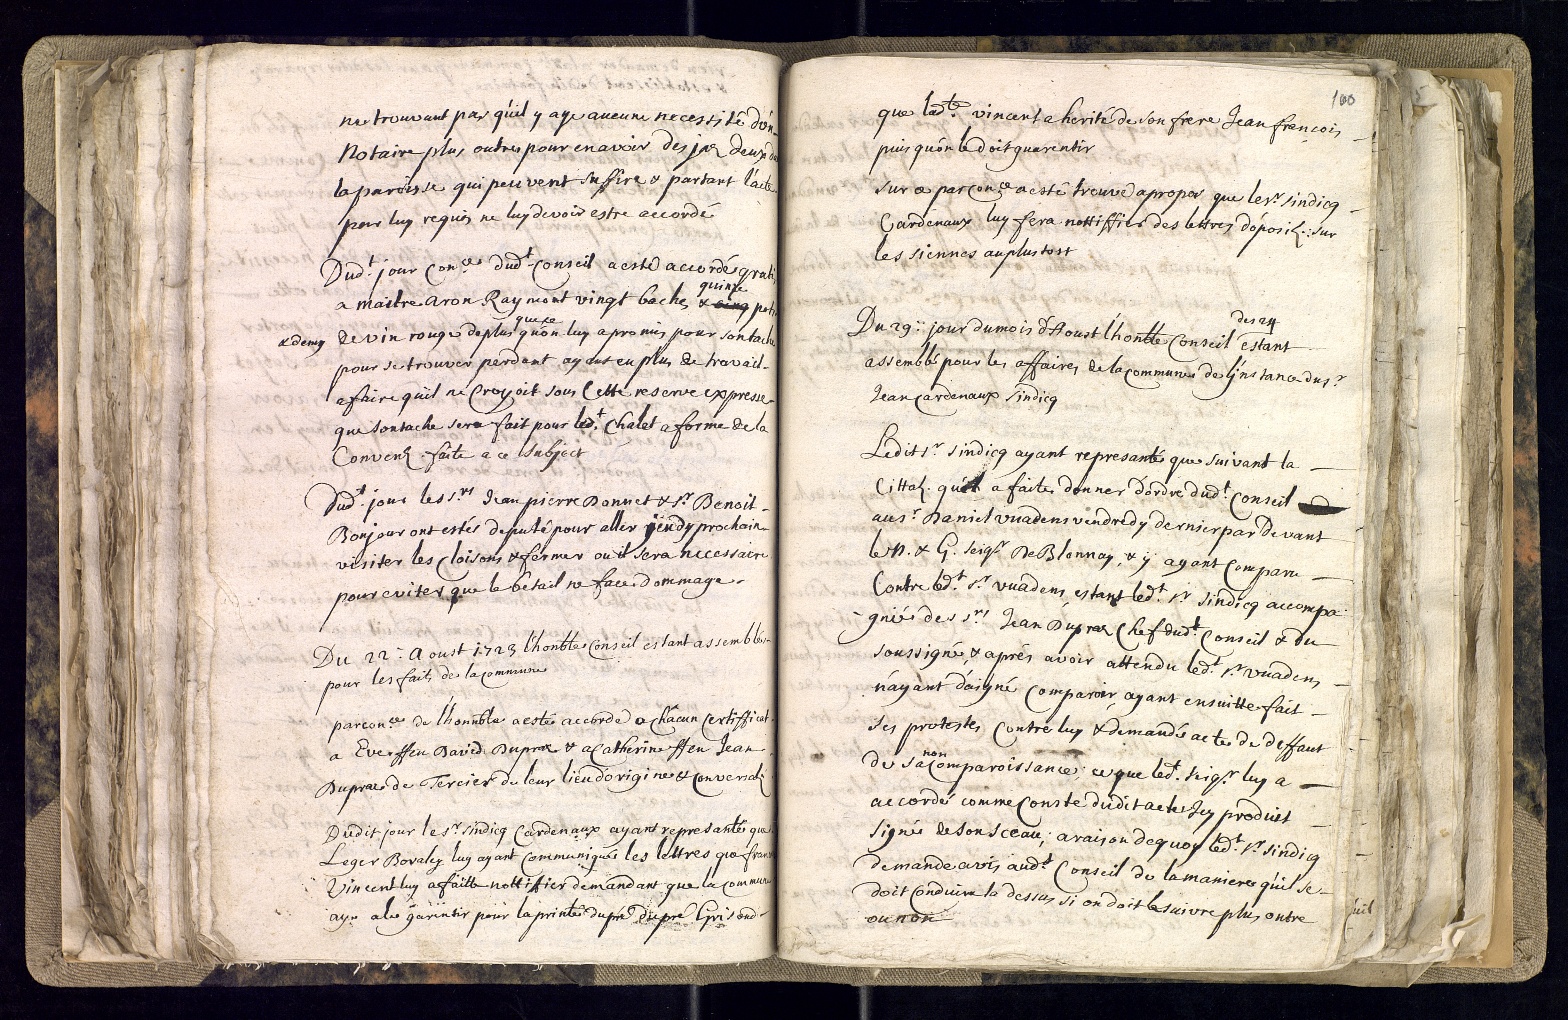 ne trouvant pas qu'il y aye aucune necessité d'ûn
Notaire plus outres pour en avoir desja deux de
la paroisse qui peuvent suffire & partant l'acte
par luy requis ne luy devoir estre accordé
Dud.t jour Con.ce dud.t Conseil a esté accordé grati
a maitre Aron Raymont vingt baches & quinze pots
& demy de vin rouge de plus que ce qu'on luy a promis pour son tache
pour se trouver perdant ayant eu plus de travail
a faire qu'il ne Croyoit sous Cette reserve expresse
que son tache sera fait pour led.t Chalet a forme de la
Conven. faite a ce Subject
Dud.t jour les s.rs Jean pierre Bonnet & s.r Benoit
Bonjour ont estés deputé pour aller jeudy prochain
visiter les Cloisons & fermer ou il sera necessaire
pour eviter que le bétail ne face dommage.
Du 22.e Aoust 1723 l'honble Conseil estant assemblés
pour les faits de la Commune
par con.ce de l'honnble a esté accordé a chácun Certifficat
a Eve ffeu David Dupraz & a Catherine ffeu Jean
Dupraz de Tercier de leur lieu d'origine & Conversa.
Dudit jour le s.r sindicq Cardenaux ayant represantés que
Leger Bovaley luy ayant Communiqués les lettres que franç
Vincent luy a faitte nottiffier demandant que la Commune
aye a le garintir pour la printes du pré dupré Grisond
100
que led.t vincent a herité de son frere Jean françois
puis qu'on le doit guarentir
sur ce par con.ce a esté trouvé a propos que le s.r sindicq
Cardenaux luy fera nottiffier des lettres d'oposi. sur
les siennes au plus tost
Du 29.e jour du mois d'Aoust l'honble Conseil des 24 estant
assemblé pour les affaires de la Commune de l'instance du s.r
Jean Cardenaux sindicq
Ledit s.r sindicq ayant represantés que suivant la
Citta. qu'il a faites donner d'ordre dud.t Conseil
au s.r Daniel vuadens vendredy dernier par devant
le N. & G. seig.r De Blonnay, & y ayant Comparu
Contre led.t s.r vuadens, estant led.t s.r sindicq accompa
gniés des s.rs Jean Dupraz Chef dud.t Conseil & du
soussigné, & aprés avoir attendu led.t s.r vuadens
n'ayant daigné Comparoir, ayant ensuitte fait
ses protestes Contre luy & demandé acte de deffaut
de sa non Comparoissance; ce que led.t seig.r luy a
accordé comme Conste dudit acte Icy produit
signée de son sceau; a raison dequoy led.t s.r sindicq
demande avis aud.t Conseil de la maniere qu'il se
doit Conduire la dessus si on doit le suivre plus outre
ou non